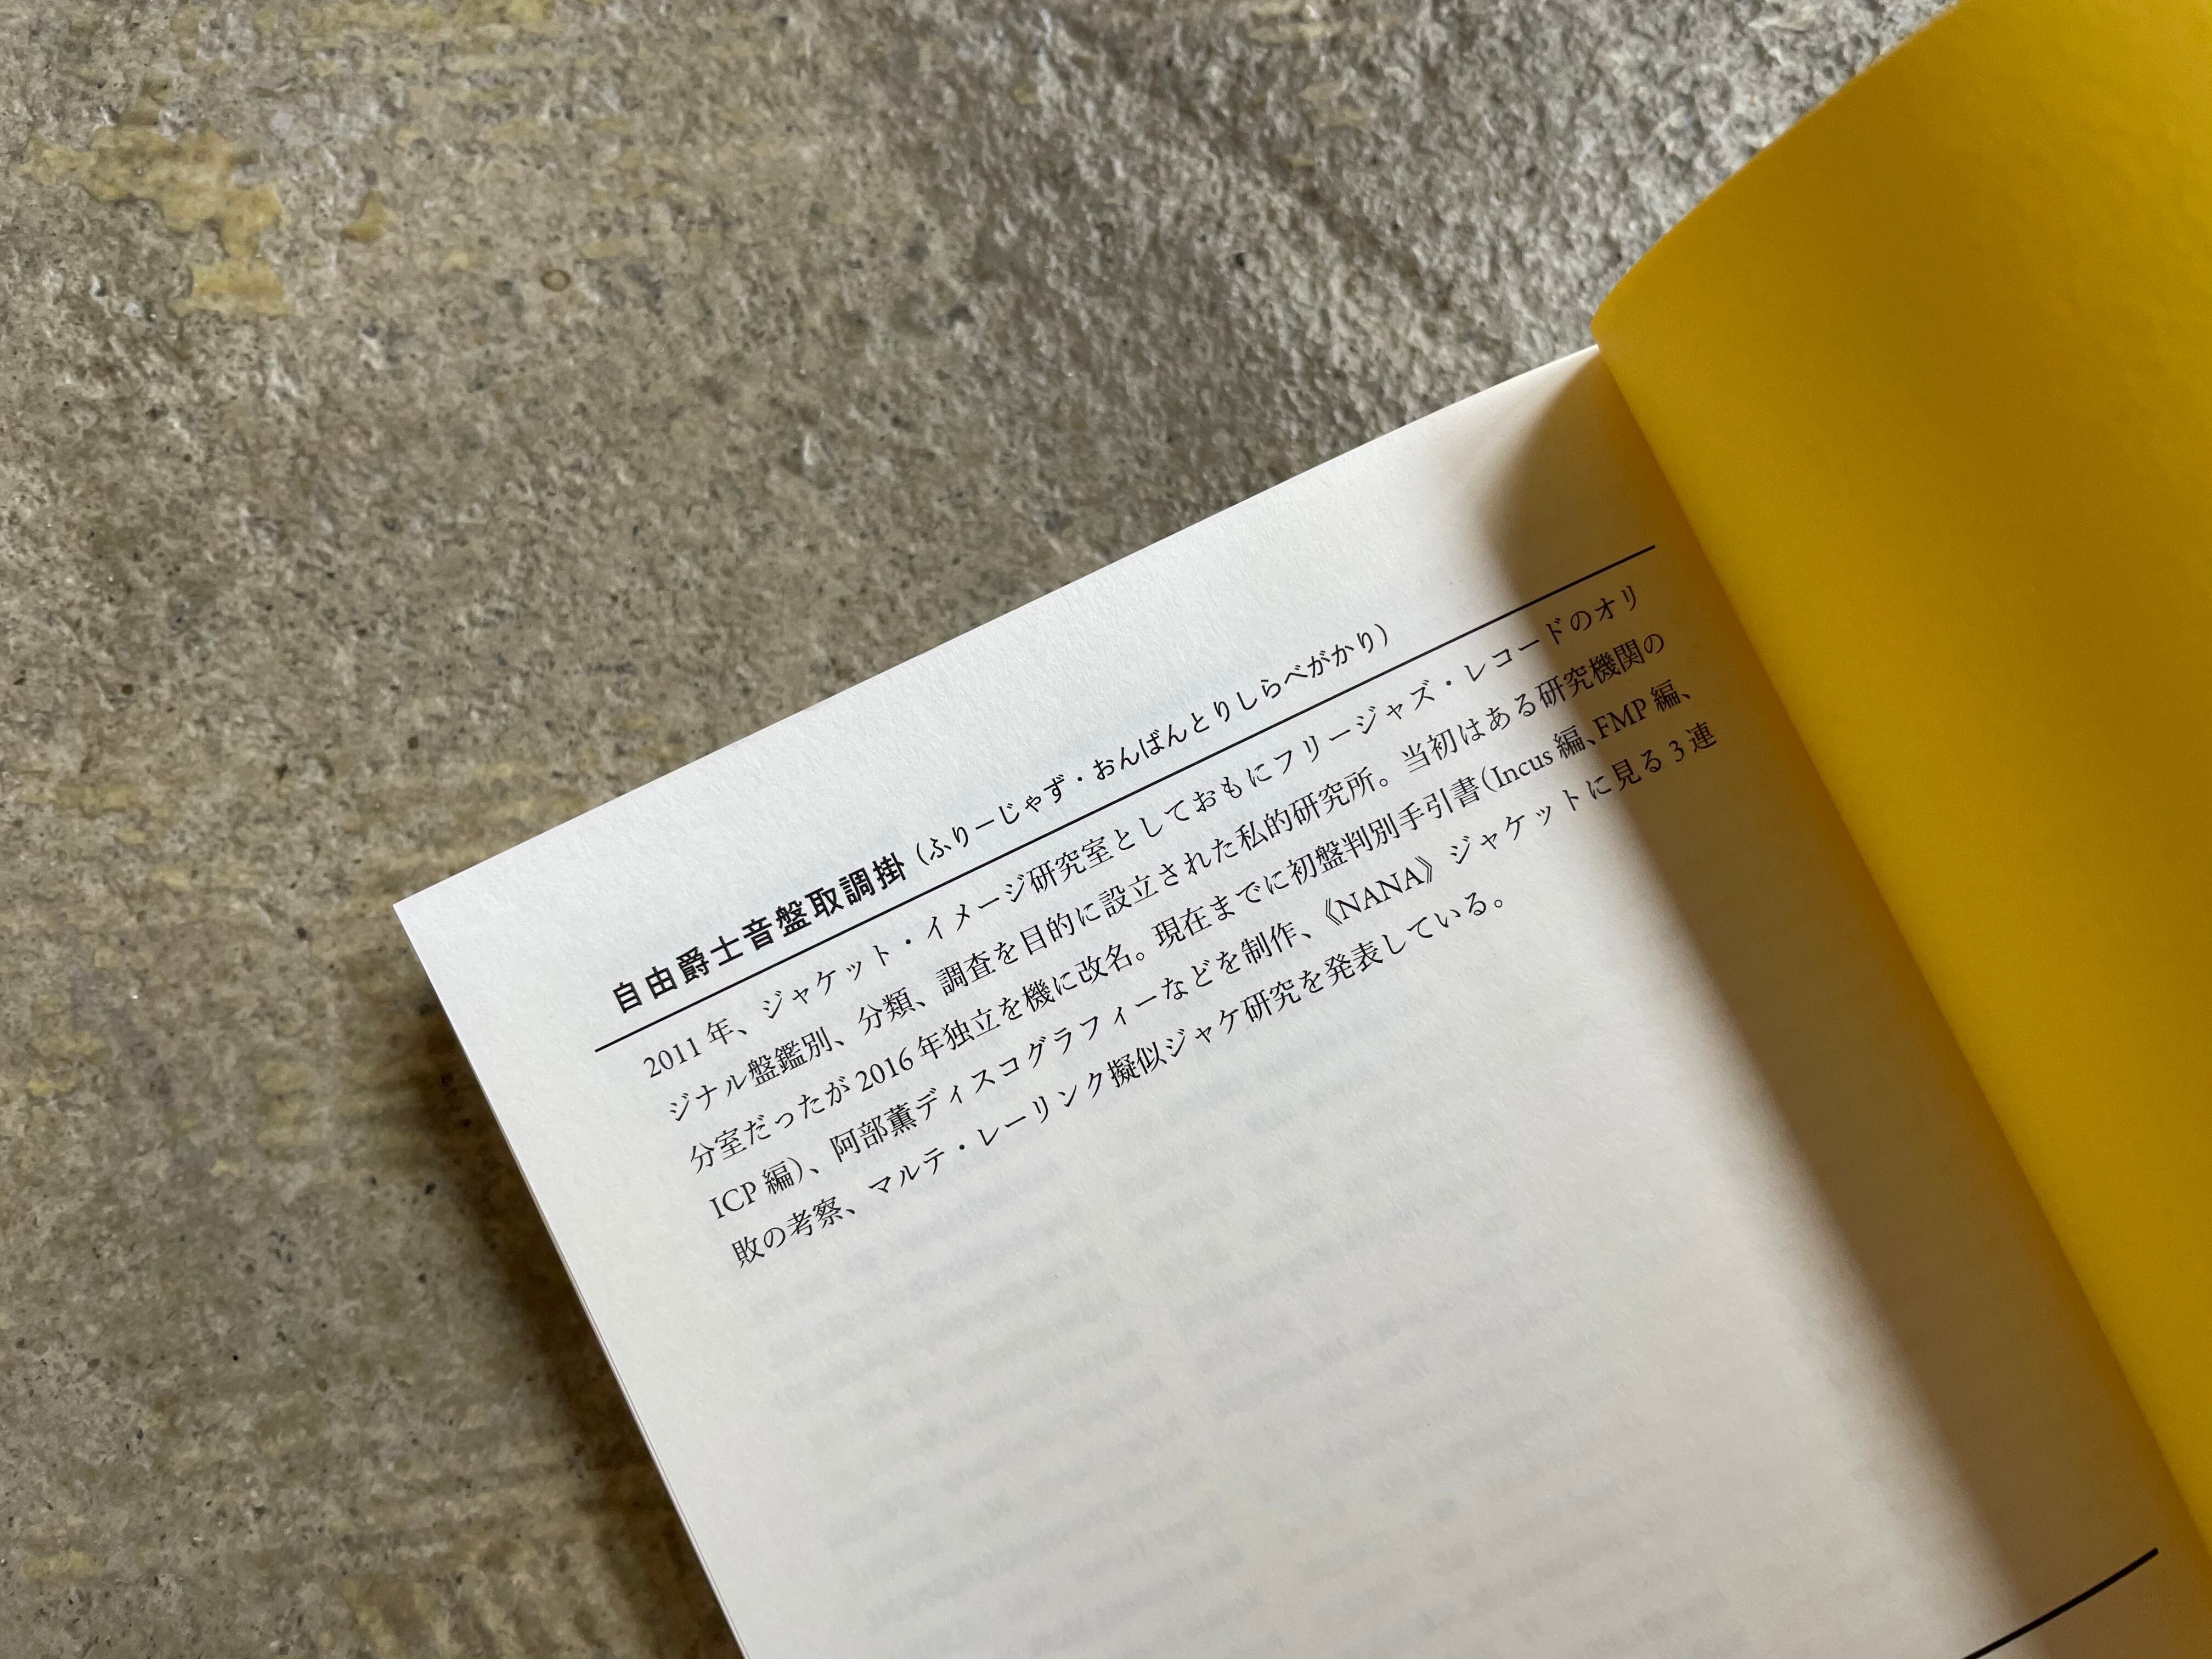 自由爵士音盤取調掛（ふりーじゃず・おんばんとりしらべがかり）
2011年、ジャケット・イメージ研究室としておもにフリージャズ・レコードのオリ
ジナル盤鑑別、分類、調査を目的に設立された私的研究所。当初はある研究機関の
分室だったが2016年独立を機に改名。現在までに初盤判別手引書（Incus編、FMP編、
ICP編）、阿部薫ディスコグラフィーなどを制作、《NANA》ジャケットに見る3連
敗の考察、マルテ・レーリンク擬似ジャケ研究を発表している。